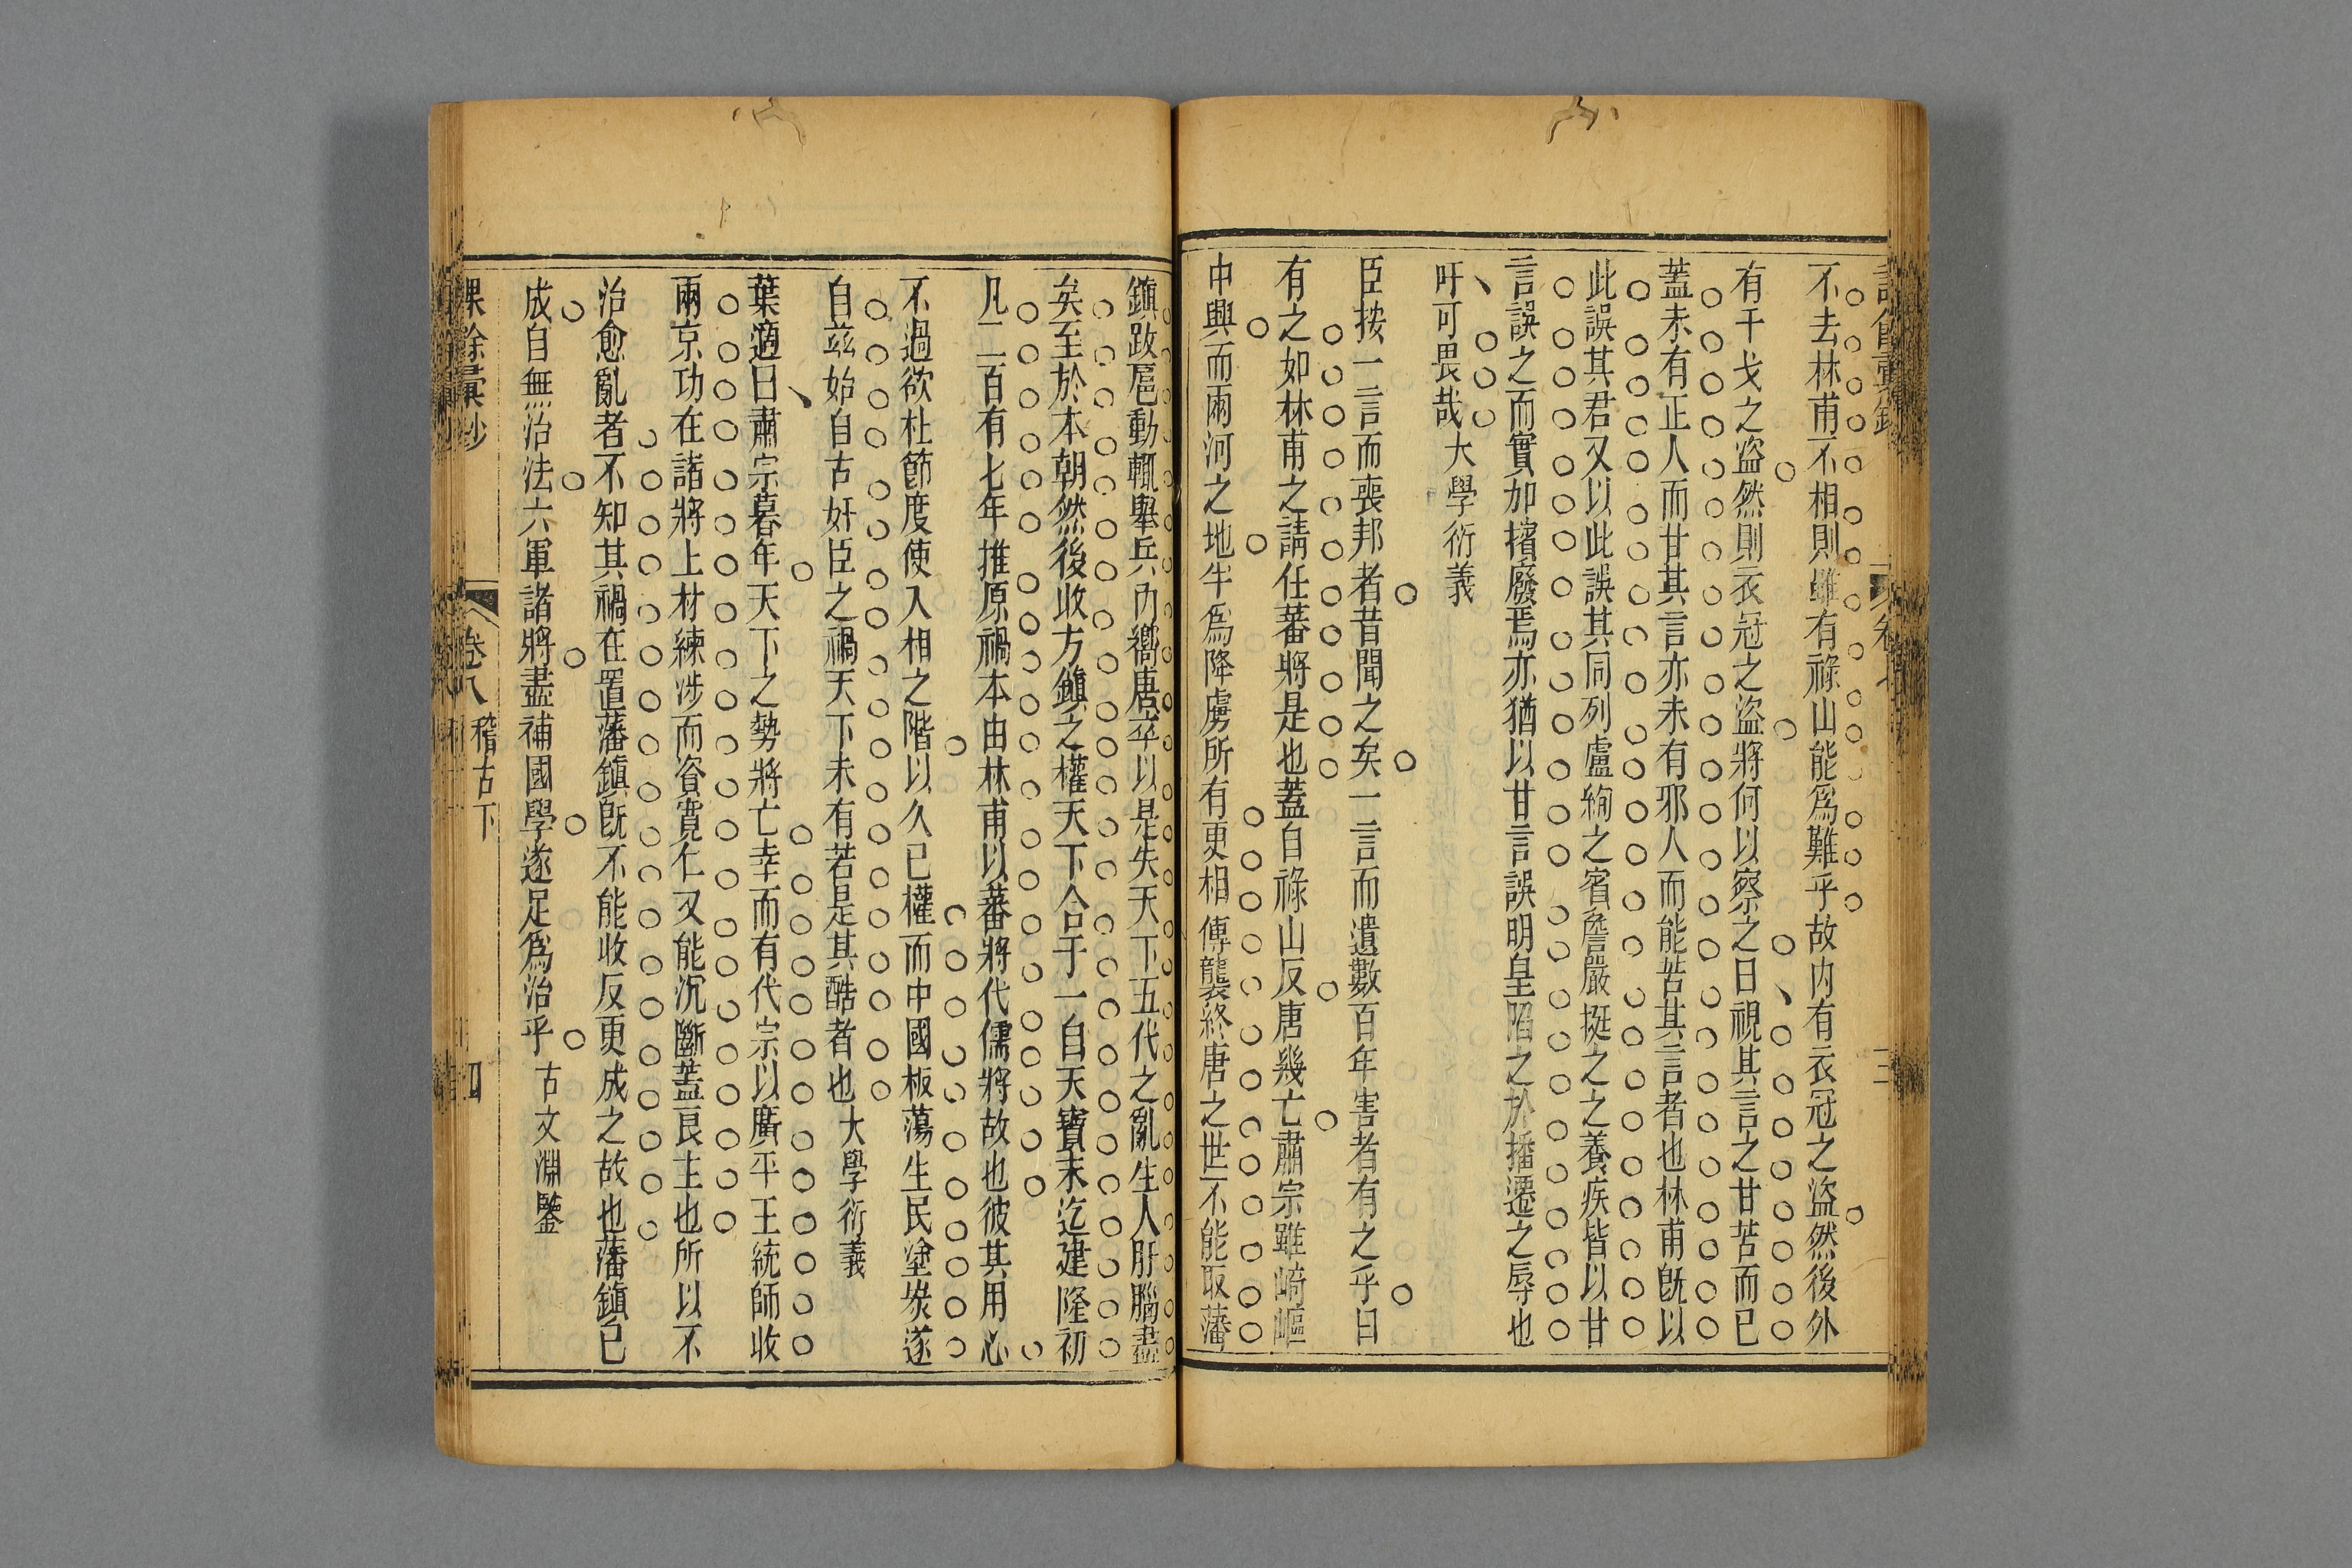 不去林甫不相則雖有祿山能爲難乎故内有衣冠之盜然後外
有干戈之盗然則衣冠之盜將何以察之曰視其言之甘苦而已
蓋未有正人而甘其言亦未有邪人而能苦其言者也林甫旣以
此誤其君又以此誤其同列盧絢之賓詹嚴挺之之養疾皆以甘
言誤之而實加擯廢焉亦猶以甘言誤明皇陷之於播遷之辱也
吁可畏哉大學衍義
臣按一言而喪邦者昔聞之矣一言而遺數百年害者有之乎曰
有之如林甫之請任蕃將是也蓋自祿山反唐幾亡肅宗雖崎嶇
中興而兩河之地半爲降虜所有更相傳襲終唐之世不能取藩
鎭跋扈動輒舉兵内嚮唐卒以是失天下五代之亂生人肝腦盡
矣至於本朝然後收方鎭之權天下合于一自天寶末迄建隆初
凡二百有七年推原禍本由林甫以蕃將代儒將故也彼其用心
不過欲杜節度使入相之階以久已權而中國板蕩生民塗炭遂
自茲始自古奸臣之禍天下未有若是其酷者也大學衍義
葉適曰肅宗暮年天下之勢將亡幸而有代宗以廣平王統師收
兩京功在諸將上材練涉而資寬仁又能沉斷蓋良主也所以不
治愈亂者不知其禍在置藩鎭旣不能收反更成之故也藩鎭已
成自無治法六軍諸將盡補國學遂足爲治乎古文淵鑒
課餘彙鈔 卷八 稽古下 四